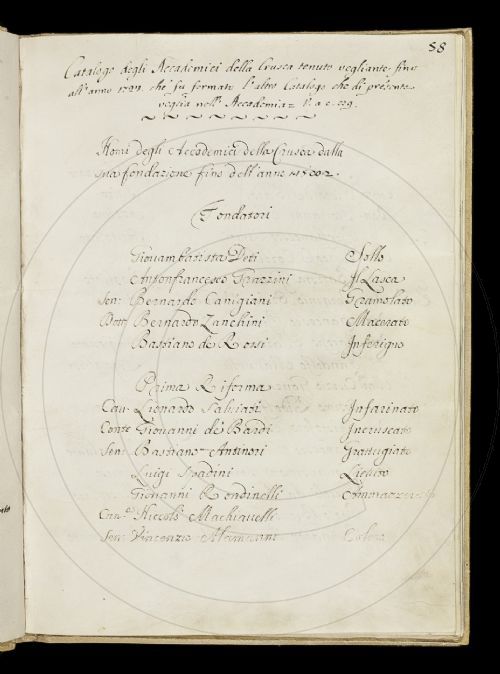 58
Catalogo degli Accademici della Crusca tenuto vegliante fino
all'anno che fu formato l'altro Catalogo che di presente
veglia nell' Accademia
Nomi degli Accademici della Crusca dalla
sua fondazione fino dell'anno
Fondatori
Giovambatista Deti Sollo
Antonfrancesco Grazzini Il Lasca
Sen: Bernardo Canigiani Gramolato
Dott: Bernardo Zanchini Macerato
Bastiano de Rossi Inferigno
Prima Riforma
Cav: Lionardo Salviati Infarinato
Conte Giovanni de Bardi Incruscato
Sen: Bastiano Antinori Grattugiato
Luigi Spadini Lievito
Giovanni Rondinelli
Can.º Niccolò Machiavelli
Sen: Vincenzio Alamanni